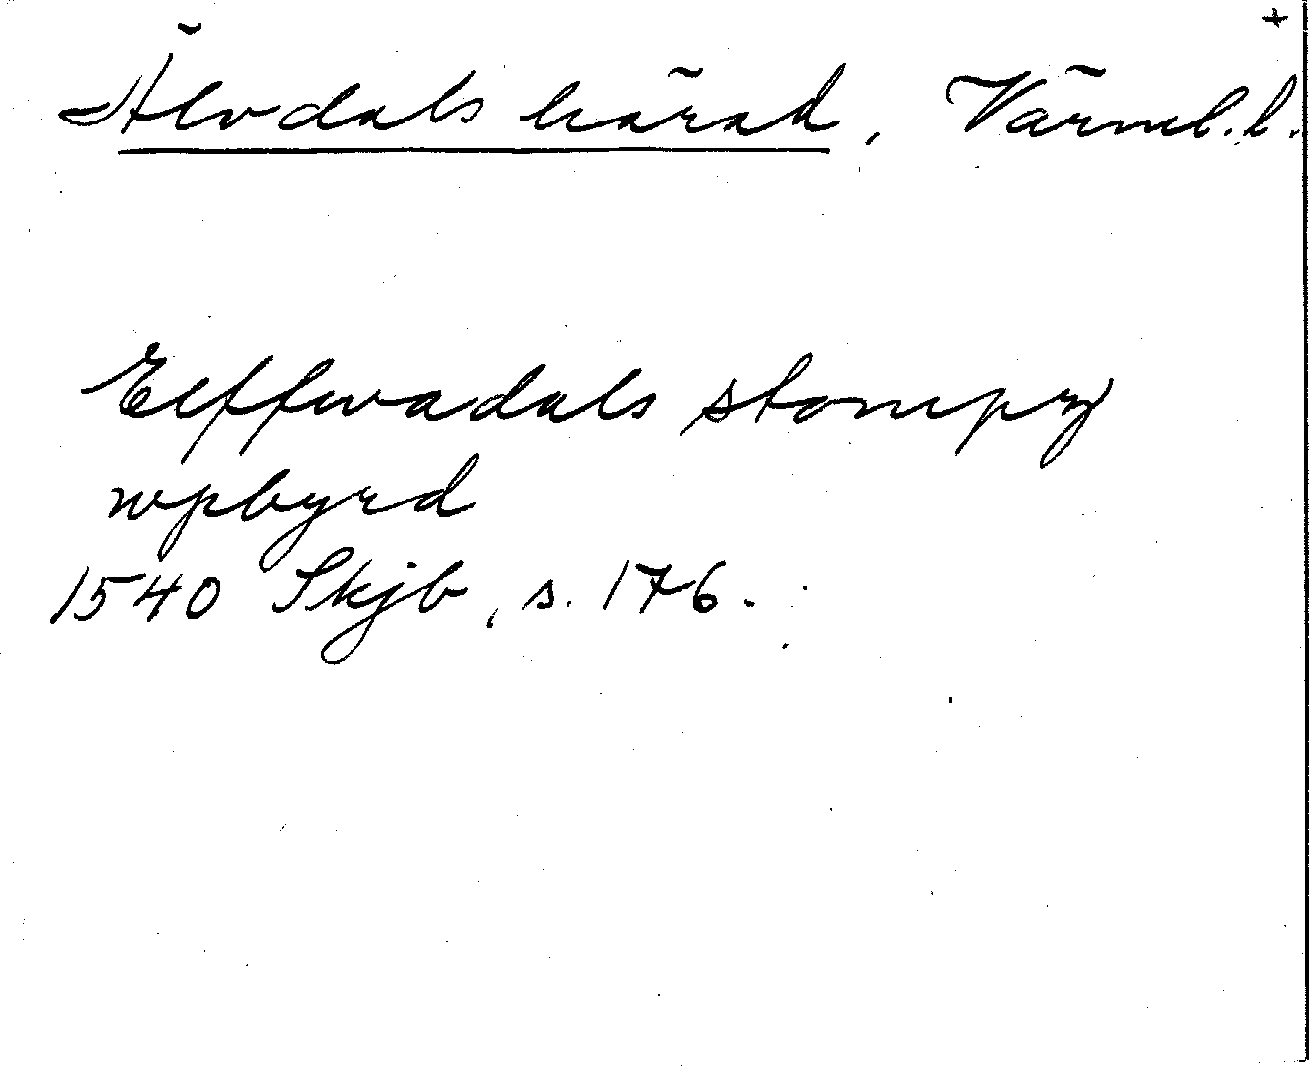 +
Älvdals härad, Värml. l.
Elffwadals stompz
wpbyrd
1540 Skjb, s. 176.